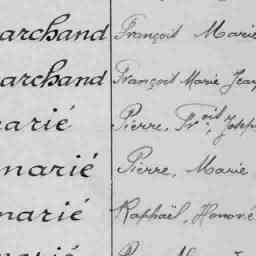 archand François Marie
archand François Marie Jean
arié Pierre, Fr.oit, Josep
marié Pierre, Marie
marié Raphaël, Honoré